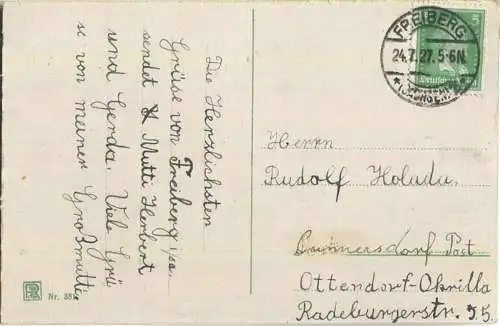 Die Herzlichsten
Grüse von Freiberg i/sa.
sendet Mutti Herbert
und Gerda. Viele Grü
se von meiner Großmutti
FREIBERG
24.7.27. 5-6N.
* (SACHSEN) *
5
Herrn
Rudolf Holadu.
Post
Ottendorf-Okrilla
Radeburgerstr. 75.
Nr. 38